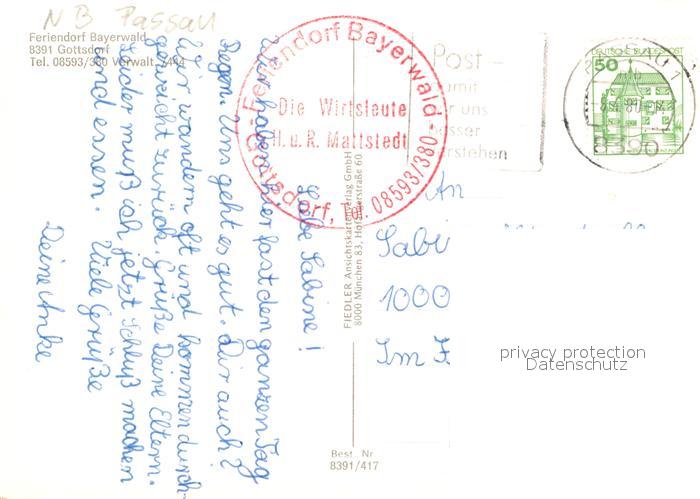 NB Passau
Feriendorf Bayerwald
8391 Gottsdorf
Tel. 08593/380 Verwalt. /444
Feriendorf Bayerwald
Die Wirtsleute
H. u. R. Mattstedt
Gottsdorf, Tel. 08593/380
Post -
damit
wir uns
besser
verstehen
DEUTSCHE BUNDESPOST
50
8390
Liebe Sabine!
Wir haben hier fast den ganzen Tag
Regen. Uns geht es gut. Dir auch?
Wir wandern oft und kommen durch-
geweicht zurück. Grüße Deine Eltern.
Leider muß ich jetzt schluß machen
und essen. Viele Grüße
Deine Anke
FIEDLER Ansichtskartenverlag GmbH
8000 München 83, Hofangerstraße 60
An
Sabi
1000
Im F
privacy protection
Datenschutz
Best. Nr
8391/417